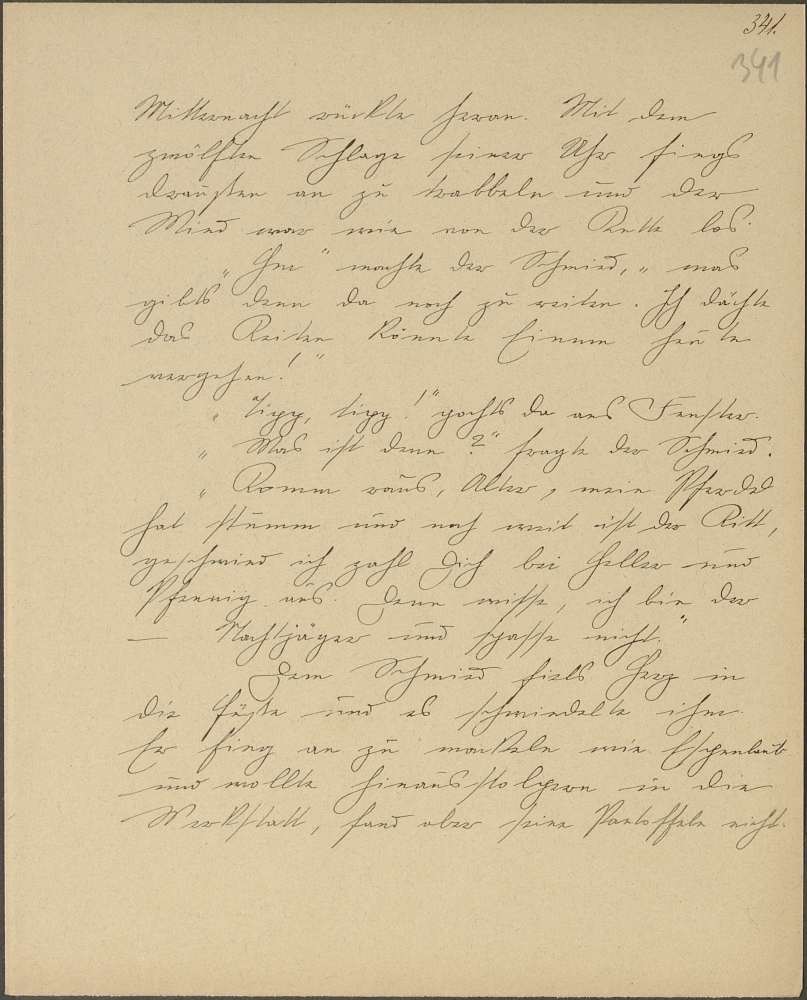 341.
341
Mitternacht rückte heran. Mit dem
zwölften Schlage seiner Uhr fings
draußen an zu krabbeln und der
Wind war wie von der Kette los.
„Hm" machte der Schmied, „was
gibts denn da noch zu reiten. Ich dächte
das Reiten könnte Einem heute
vergehen!"
„Tipp, tipp!" pochts da ans Fenster.
„Was ist denn?" fragte der Schmied.
„Komm raus, Alter, mein Pferdel
hat stumm und noch weit ist der Ritt,
geschwind ich zahl Dich bei Heller und
Pfennig aus. Denn wisse, ich bin der
— Nachtjäger und spasse nicht."
Dem Schmied fiels Herz in
die Füße und es schwindelte ihm.
Er fing an zu wackeln wie Espenlaub
und wollte hinausstolpern in die
Werkstatt, fand aber seine Pantoffeln nicht.